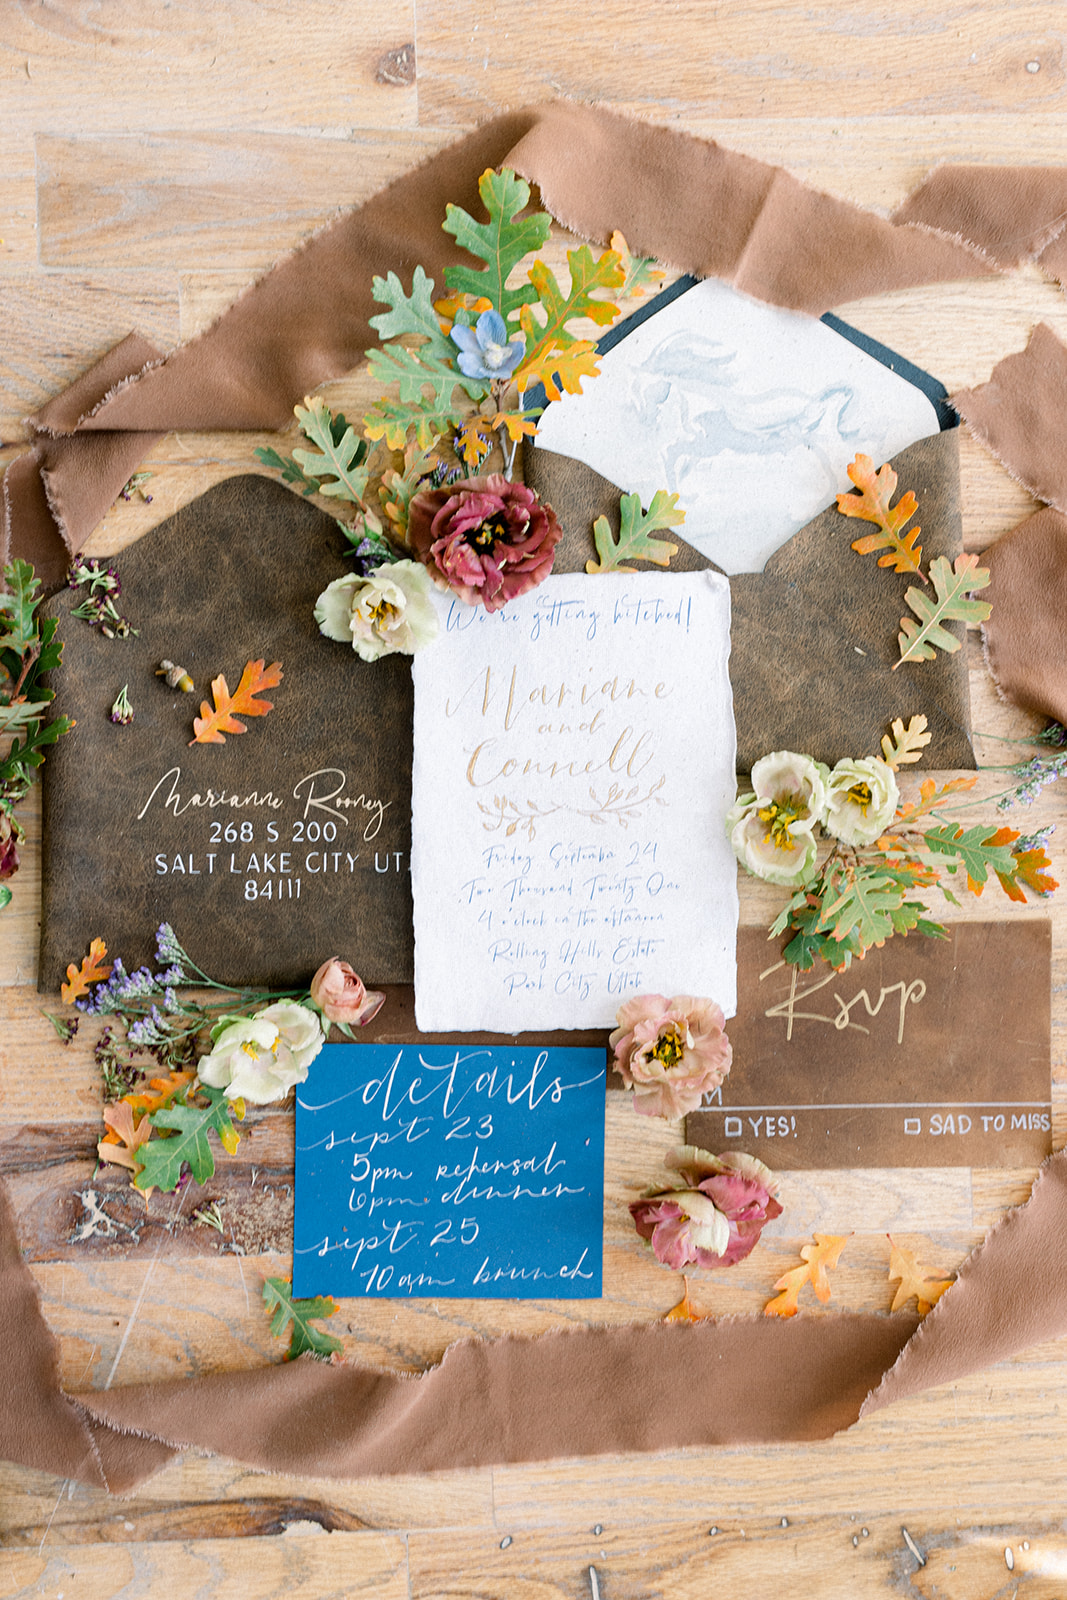 We're getting hitched!
Mariane
and
Connell
Friday September 24
Two Thousand Twenty One
4 o'clock in the afternoon
Rolling Hills Estate
Park City Utah
Marianne Rooney
268 S 200
SALT LAKE CITY UT
84111
Rsvp
M
YES! SAD TO MISS
details
sept 23
5pm rehersal
6pm dinner
sept 25
10am brunch